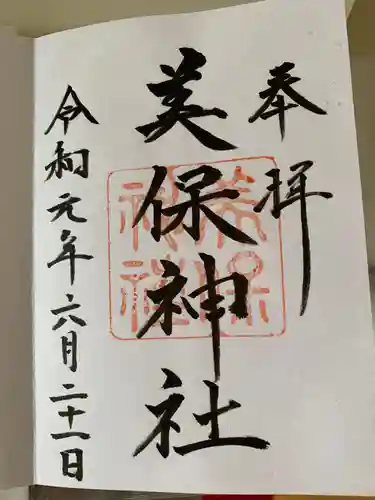 奉拝
美保神社
令和元年六月二十一日
美保
神社